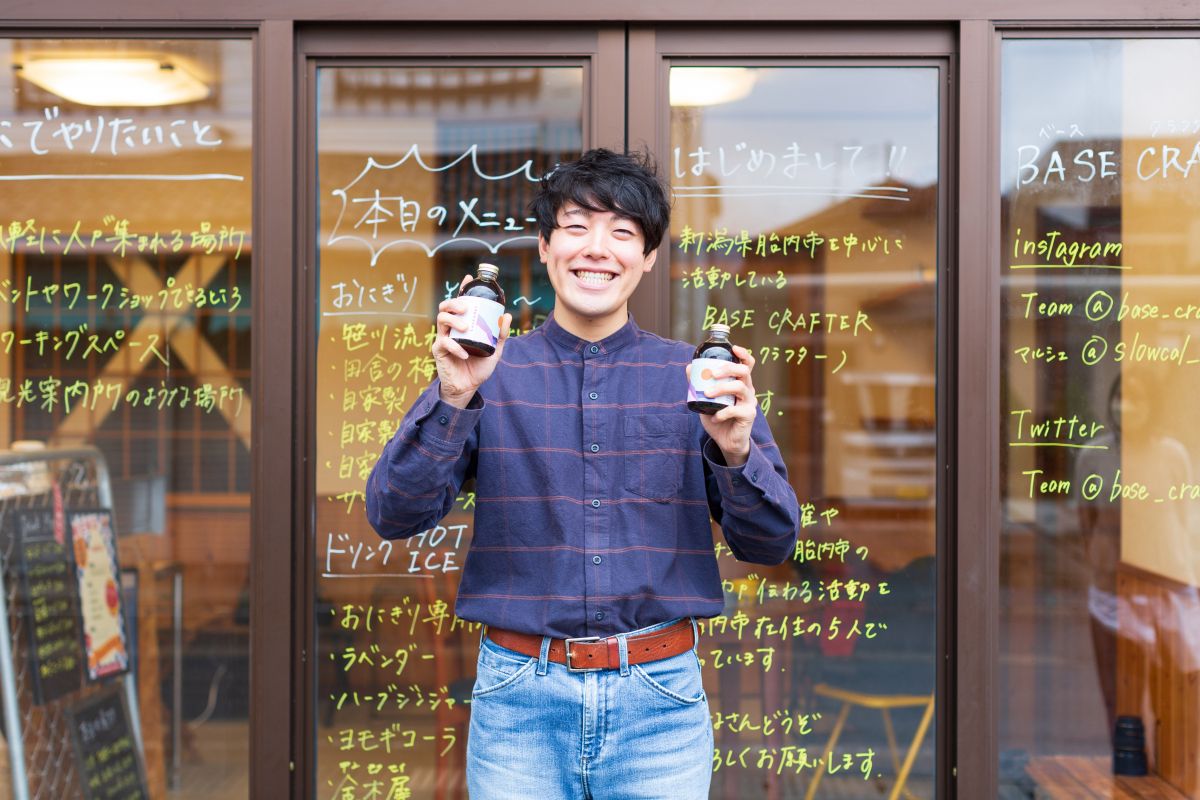 にでやりたいこと
軽に人が集まれる場所
ベントやワークショップできるところ
ワーキングスペース
観光案内所のような場所
本日のメニュー
おにぎり ¥ 〜
・笹川流れ
・田舎の梅
・自家製
・自家製
・自家
・サ ース
ドリンク HOT
ICE
・おにぎり専用
・ラベンダー
・ハーブジンジャー
・ヨモギコーラ
・金木犀
はじめまして!!
新潟県胎内市を中心に
活動している
BASE CRAFTER
クラフター)
す.
催や
胎内市の
が伝わる活動を
内市在住の5人で
っています.
なさんどうぞ
ろしくお願いします.
ベース クラフ
BASE CRA
instagram
Team @base_cra
マルシェ @slowcal_
Twitter
Team @base_cra